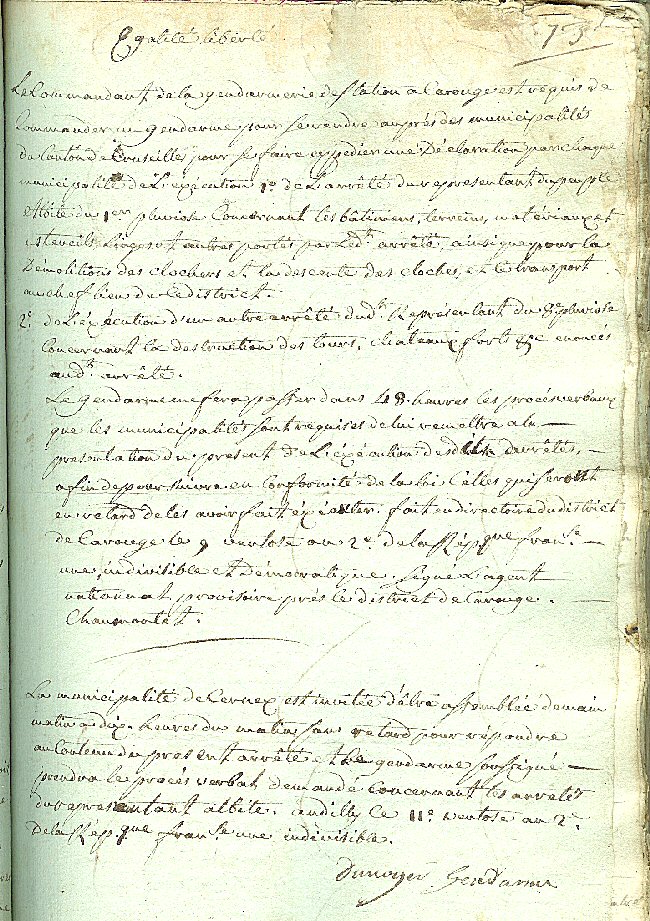 73
Egalité liberté
Le Commandant de la gendarmerie de station a Carouge est requis de
Commander un gendarme pour se rendre auprés des municipalités
du Canton de Cruseilles pour se faire expedier une Déclaration par chaque
municipalité de L'exécution 1º. de L'arrêté du representant du peuple
Albite du 1er. pluviose Concernant les bâtimens, terreins, matériaux et
autres portés par Ledt. arrêté, ainsi que pour la
Démolitions des clochers et la descente des cloches, et le transport
au chef lieu de Ce district.
2º. de L'exécution d'un autre arrêté dudt. Représentant du pluviose
Concernant la destruction des tours, chateaux forts énoncés
audt. arrêté.
Le gendarme me fera passer dans 48. heures les procés verbaux
que les municipalités sont requises de lui remettre a la —
presentation du present de L'éxécution desdits arrêtés, —
afin de poursuivre en Conformité de la loi Celles qui seront
en retard de les avoir fait éxécuter. fait en directoire du district
de Carouge le 9 ventose an 2e. de la Répque franse. —
une, indivisible et Démocratique. Signé L'agent
national provisoire prés le district de Carouge.
Chaumontet.
La municipalité de Cernex est invitée d'être assemblée demain
matin a dix heures du matin sans retard pour répondre
au Contenu du present arrêté et le gendarme soussigné —
prendra le procés verbal demandé Concernant les arrêtés
du representant albite. andilly Ce 11e. ventose an 2e.
De la Rep.que franse. une indivisible.
Dunoyer Gendarme